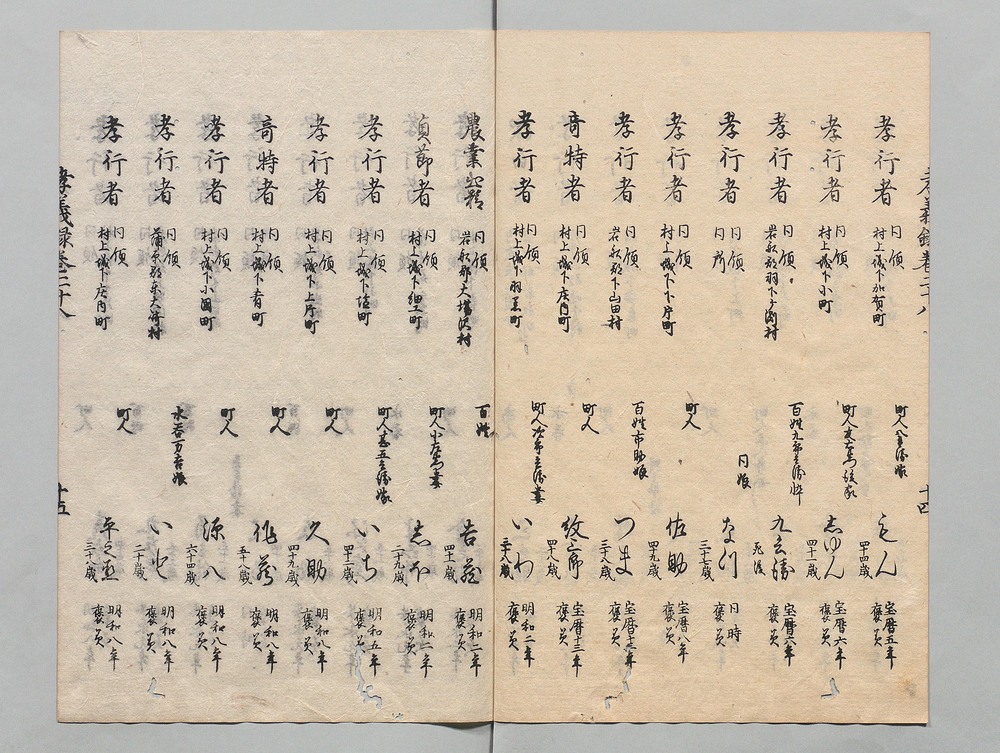 孝義録巻二十八
十四
孝行者 同領 村上城下加賀町 町人八兵衛嫁 もん 四十四歳 宝暦五年 褒美
孝行者 同領 村上城下小町 町人 嫁 志ゆん 四十一歳 宝暦六年 褒美
孝行者 同領 岩船郡羽下ヶ渕村 百姓九郎兵衛忰 九兵衛 死後 宝暦六年 褒美
孝行者 同領 同所 同娘 なつ 三十七歳 同時 褒美
孝行者 同領 村上城下下片町 町人 佐助 四十九歳 宝暦八年 褒美
孝行者 同領 岩船郡山田村 百姓市助娘 つま 三十八歳 宝暦十三年 褒美
奇特者 同領 村上城下庄内町 町人 紋三郎 四十八歳 宝暦十三年 褒美
孝行者 同領 村上城下羽黒町 町人次郎兵衛妻 いわ 三十八歳 明和二年 褒美
農業出精 同領 岩船郡大場沢村 百姓 吉蔵 四十一歳 明和二年 褒美
貞節者 同領 村上城下細工町 町人 妻 志ほ 二十九歳 明和二年 褒美
孝行者 同領 村上城下塩町 町人甚五兵衛嫁 いち 四十二歳 明和五年 褒美
孝行者 同領 村上城下上片町 町人 久助 四十九歳 明和八年 褒美
奇特者 同領 村上城下肴町 町人 作蔵 五十八歳 明和八年 褒美
孝行者 同領 村上城下小国町 町人 源八 六十四歳 明和八年 褒美
孝行者 同領 蒲原郡 村 水呑万吉娘 いと 二十歳 明和八年 褒美
孝行者 同領 村上城下庄内町 町人 平之丞 三十八歳 明和八年 褒美
孝義録巻二十八
十五